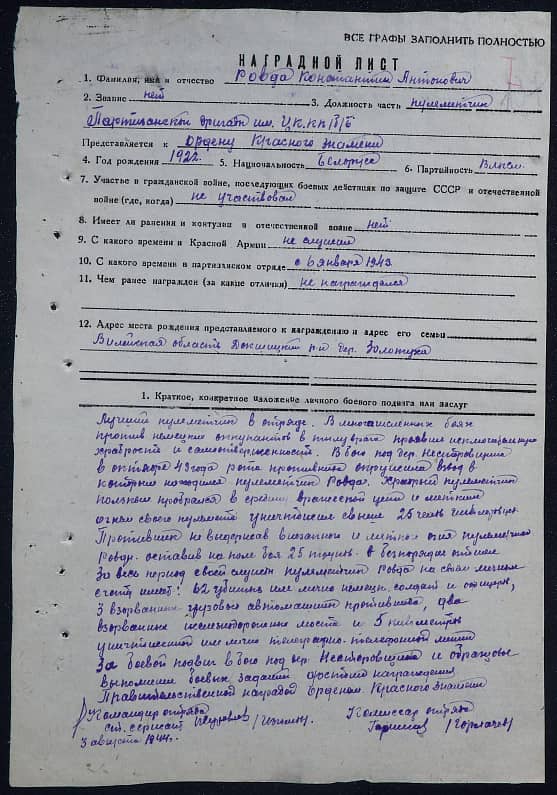 ВСЕ ГРАФЫ ЗАПОЛНИТЬ ПОЛНОСТЬЮ
НАГРАДНОЙ ЛИСТ
1. Фамилия, имя и отчество Ровда Константин Антонович
2. Звание нет 3. Должность часть пулеметчик
Партизанской бригады им. ЦК.КП/б/Б
Представляется к Ордену Красного Знамени
4. Год рождения 1922. 5. Национальность Белорус 6. Партийность Влксм
7. Участие в гражданской войне, последующих боевых действиях по защите СССР и отечественной
войне (где, когда) не участвовал
8. Имеет ли ранения и контузии в отечественной войне нет
9. С какого времени в Красной Армии не служил
10. С какого времени в партизанском отряде с 6 января 1943
11. Чем ранее награжден (за какие отличия) не награждался
12. Адрес места рождения представляемого к награждению и адрес его семьи
Вилейская область Докшицкий р-н дер. Золотуха
1. Краткое, конкретное изложение личного боевого подвига или заслуг
Лучший пулеметчик в отряде. В многочисленных боях
против немецких оккупантов в тылу врага проявил исключительную
храбрость и самоотверженность. В бою под дер. Нестеровщина
в октябре 43 года рота противника окружила взвод в
котором находился пулеметчик Ровда. Храбрый пулеметчик
ползком пробрался в средину вражеской цепи и метким
огнем своего пулемета уничтожил свыше 25 гитлеровцев.
Противник не выдержав внезапного и меткого огня пулеметчика
Ровды. оставив на поле боя 25 трупов. в безпорядке отошел
За весь период своей службы пулеметчик Ровда на своем личном
счету имеет: 62 убитых им лично немецк. солдат и офицеров,
3 взорванных грузовых автомашин противника, два
взорванных железнодорожных моста и 5 километров
уничтоженной им лично телеграфно-телефонной линии
За боевой подвиг в бою под дер. Нестеровщина и образцовое
выполнение боевых заданий достоин награждения
Правительственной наградой Орденом Красного Знамени
Командир отряда Комиссар отряда
ст. сержант /Горбачев/
3 августа 1944г.